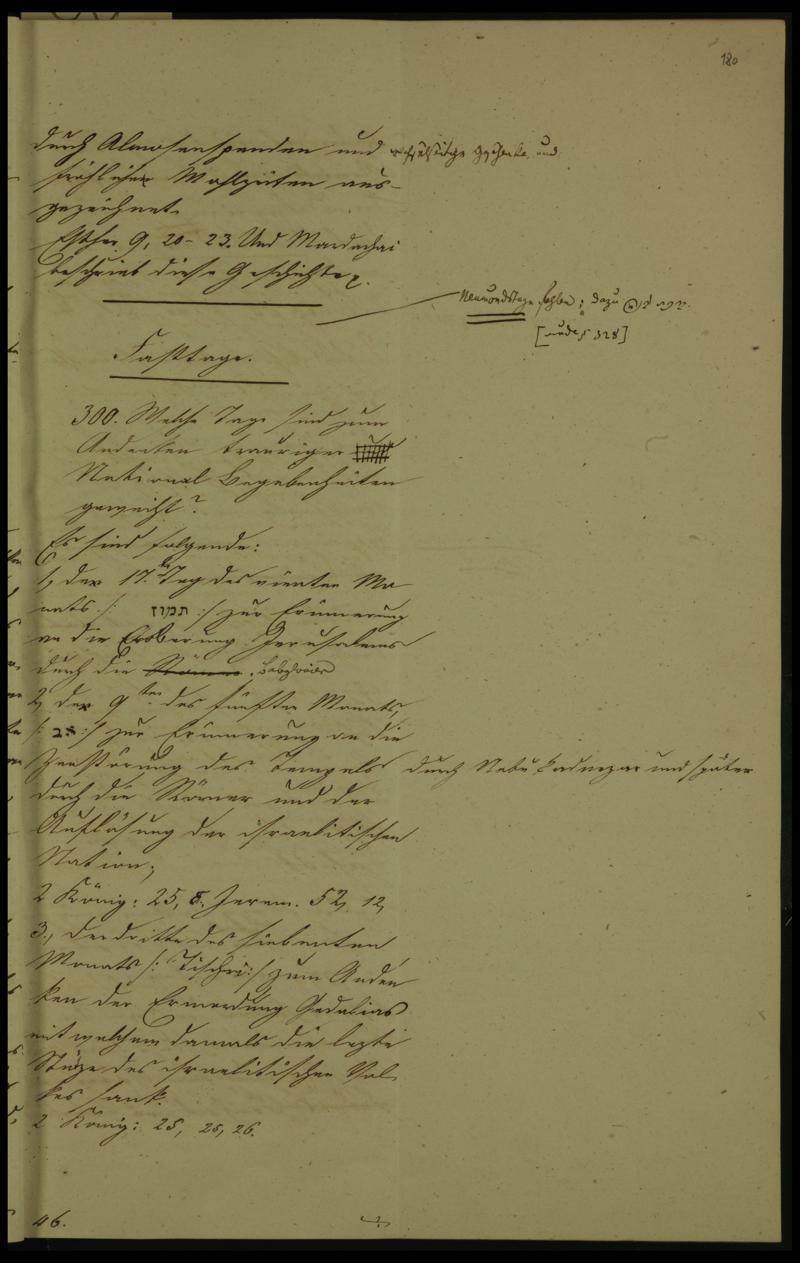 180
durch Almosenspenden und wechselseitige Geschenke und
fröhlichen Mahlzeiten aus-
gezeichnet.
Esther 9, 20-23. Und Mardachai
beschrieb diese Geschichte
Neumondstage fehlen; dazu
[ 328]
Fasttage.
300. Welche Tage sind zum
Andenken trauriger
National Begebenheiten
geweiht?
Es sind folgende:
1, der 17te Tag des vierten Mo-
nats /: תמוז :/ zur Erinnerung
an die Eroberung Jerusalems
durch die Römer
2, der 9ten des fünften Monats,
/: אב :/ zur Erinnerung an die
Zerstörung des Tempels durch Nebukadnezar und später
durch die Römer und der
Auflösung der israelitischen
Nation;
2 König: 25, 8. Jerem. 52, 12,
3., der dritte des siebenten
Monats /: Tischri :/ zum Anden
ken der Ermordung Gedalias
mit welchem damals die lezte
Stüze des israelitischen Vol-
kes sank.
2 König: 25, 25, 26.
46.